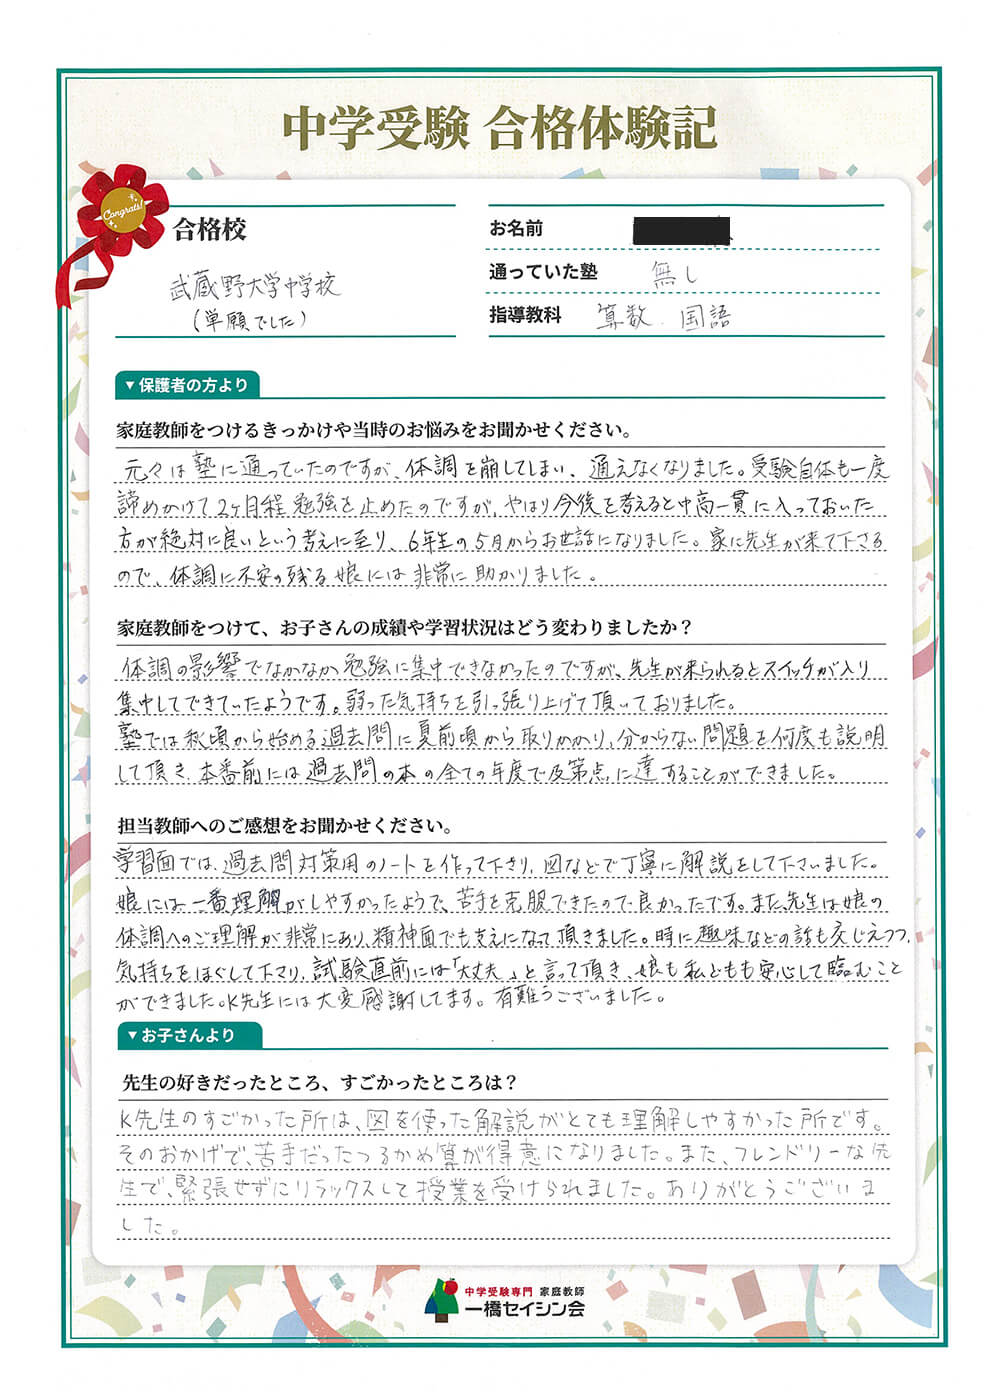 中学受験 合格体験記
Congrats!
合格校
武蔵野大学中学校
(単願でした)
お名前
通っていた塾 無し
指導教科 算数 国語
▼保護者の方より
家庭教師をつけるきっかけや当時のお悩みをお聞かせください。
元々は塾に通っていたのですが、体調を崩してしまい、通えなくなりました。受験自体も一度
諦めかけて2ヶ月程勉強を止めたのですが、やはり今後を考えると中高一貫に入っておいた
方が絶対に良いという考えに至り、6年生の5月からお世話になりました。家に先生が来て下さる
ので、体調に不安の残る娘には非常に助かりました。
家庭教師をつけて、お子さんの成績や学習状況はどう変わりましたか？
体調の影響でなかなか勉強に集中できなかったのですが、先生が来られるとスイッチが入り
集中してできていたようです。弱った気持ちを引っ張り上げて頂いておりました。
塾では秋頃から始める過去問に夏前頃から取りかかり、分からない問題を何度も説明
して頂き、本番前には過去問の本の全ての年度で及第点に達することができました。
担当教師へのご感想をお聞かせください。
学習面では、過去問対策用のノートを作って下さり、図などで丁寧に解説をして下さいました。
娘には一番理解がしやすかったようで、苦手を克服できたので良かったです。また、先生は娘の
体調へのご理解が非常にあり、精神面でも支えになって頂きました。時に趣味などの話も交じえつつ、
気持ちをほぐして下さり、試験直前には「大丈夫」と言って頂き、娘も私どもも安心して臨むこと
ができました。K先生には大変感謝してます。有難うございました。
▼お子さんより
先生の好きだったところ、すごかったところは？
K先生のすごかった所は、図を使った解説がとても理解しやすかった所です。
そのおかげで、苦手だったつるかめ算が得意になりました。また、フレンドリーな先
生で、緊張せずにリラックスして授業を受けられました。ありがとうございま
した。
中学受験専門 家庭教師
一橋セイシン会